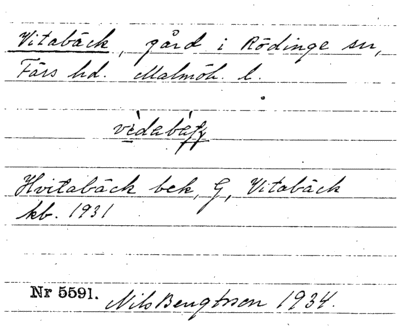 Vitabäck, gård i Rödinge sn,
Färs hd. Malmöh. l.
Hvitabäck bek, G, Vitabäck
kb. 1931
Nr 5591. Nils Bengtsson 1934.